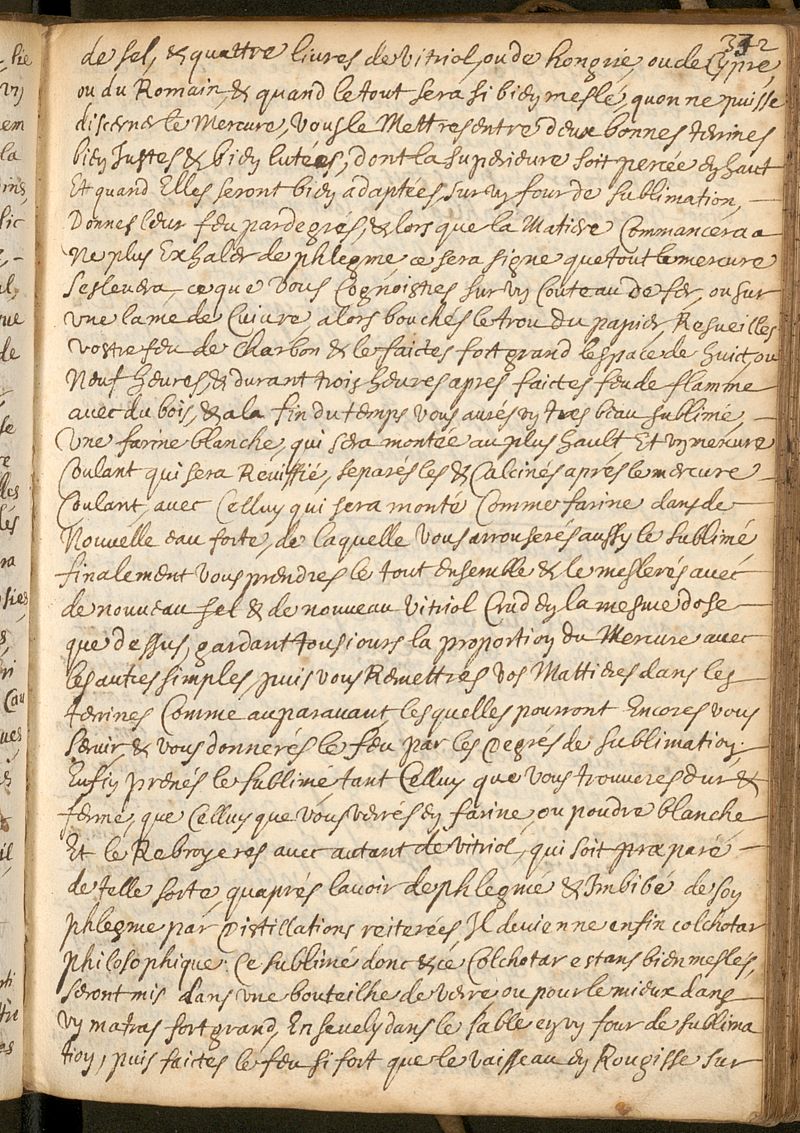 342
de sel, & quattre livres de vitriol, ou de hongrie, ou de Cypre,
ou du Romain, & quand le tout sera si bien meslé, quon ne puisse
discerner le Mercure, vous le Mettres entre deux bonnes terrines
bien Justes & bien lutées, dont la superieure soit percée en haut
Et quand Elles seront bien adaptées sur un four de sublimation,
Donnes leur feu par degrés, & lors que la Matiere Commancera a
Ne plus Exhaler de phlegme, ce sera signe que tout le mercure
Seslevera, ce que vous Cognoistres sur un Couteau de fer, ou sur
une lame de Cuivre, alors bouchés le trou du papier, Resveilles
vostre feu de Charbon & le faictes fort grand lespace de huict, ou
Neuf heures, & durant trois heures apres faictes feu de flamme
avec du bois, & a la fin du temps vous aures un tres beau sublimé,
Une farine blanche, qui sera montée au plus hault, Et un mercure
Coulant qui sera Reviffié, separés les & Calcinés aprés le mercure
Coulant, avec Celluy qui sera monté Comme farine dans de
Nouvelle eau forte, de laquelle vous arrouserés aussy le sublimé
finalement vous prendres le tout ensemble & le meslerés avec
de nouveau sel & de nouveau vitriol Crud en la mesme dose
que dessus, gardant tousiours la proportion du Mercure avec
les autres simples, puis vous Remettres vos Mattieres dans les
terrines Comme auparavant, lesquelles pourront Encores vous
servir, & vous donnerés le feu par les degrés de sublimation.
Enfin prenés le sublimé tant Celluy que vous trouveres dur &
ferme, que Celluy que vous verrés en farine, ou poudre blanche
Et le Rebroyeres avec autant de vitriol, qui soit præparé
de telle sorte, quaprés lavoir dephlegmé & Imbibé de son
phlegme par distillations reiterées Il devienne enfin colchotar
philosophique. Ce sublimé donc & ce Colchotar estans bien mesles,
seront mis dans une bouteilhe de verre ou pour le mieux dans
un matras fort grand, Ensevely dans le sable en un four de sublima
tion, puis faictes le feu si fort que le vaisseau en Rougisse sur